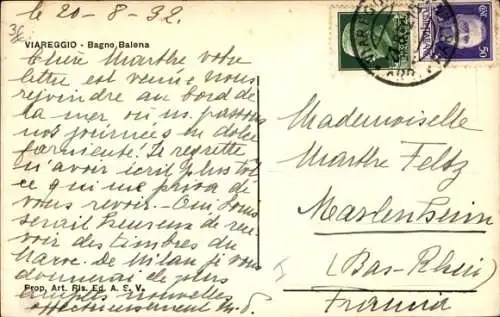 le 20-8-32.
VIAREGGIO - Bagno Balena
Chère Marthe votre
lettre est venue nous
rejoindre au bord de
la mer où ns. passons
nos journées en dolce
farniente! Je regrette
n'avoir écrit plus tôt
ce qui me priva de
vous revoir - Oui nous
serait heureux de rece
voir des timbres du
Maroc. De Milan je vous
donnerai de plus
Prop. Art. Ris. Ed. A. S. V.
amples nouvelles
affectueusement
Mademoiselle
Marthe Feltz
Marlenheim
(Bas-Rhin)
Francia
50